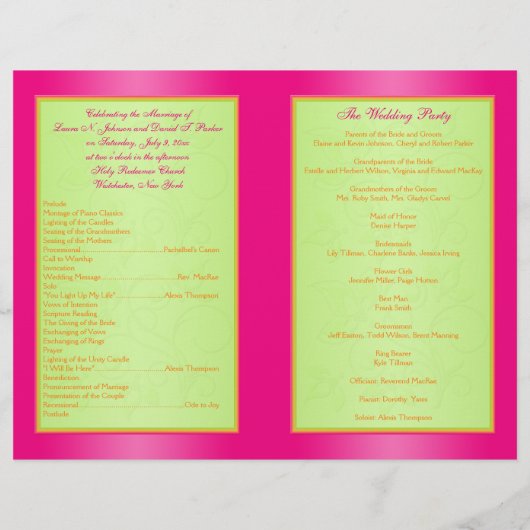 Celebrating the Marriage of
Laura N. Johnson and Daniel T. Parker
on Saturday, July 9, 20xx
at two o'clock in the afternoon
Holy Redeemer Church
Watchester, New York
Prelude
Montage of Piano Classics
Lighting of the Candles
Seating of the Grandmothers
Seating of the Mothers
Processional..............................Pachelbel's Canon
Call to Worship
Invocation
Wedding Message..............................Rev. MacRae
Solo
"You Light Up My Life"....................Alexis Thompson
Vows of Intention
Scripture Reading
The Giving of the Bride
Exchanging of Vows
Exchanging of Rings
Prayer
Lighting of the Unity Candle
"I Will Be Here"..............................Alexis Thompson
Benediction
Pronouncement of Marriage
Presentation of the Couple
Recessional..............................Ode to Joy
Postlude
The Wedding Party
Parents of the Bride and Groom
Elaine and Kevin Johnson, Cheryl and Robert Parker
Grandparents of the Bride
Estelle and Herbert Wilson, Virginia and Edward MacKay
Grandmothers of the Groom
Mrs. Ruby Smith, Mrs. Gladys Carvel
Maid of Honor
Denise Harper
Bridesmaids
Lily Tillman, Charlene Banks, Jessica Irving
Flower Girls
Jennifer Miller, Paige Hutton
Best Man
Frank Smith
Groomsmen
Jeff Easton, Todd Wilson, Brent Manning
Ring Bearer
Kyle Tillman
Officiant: Reverend MacRae
Pianist: Dorothy Yates
Soloist: Alexis Thompson